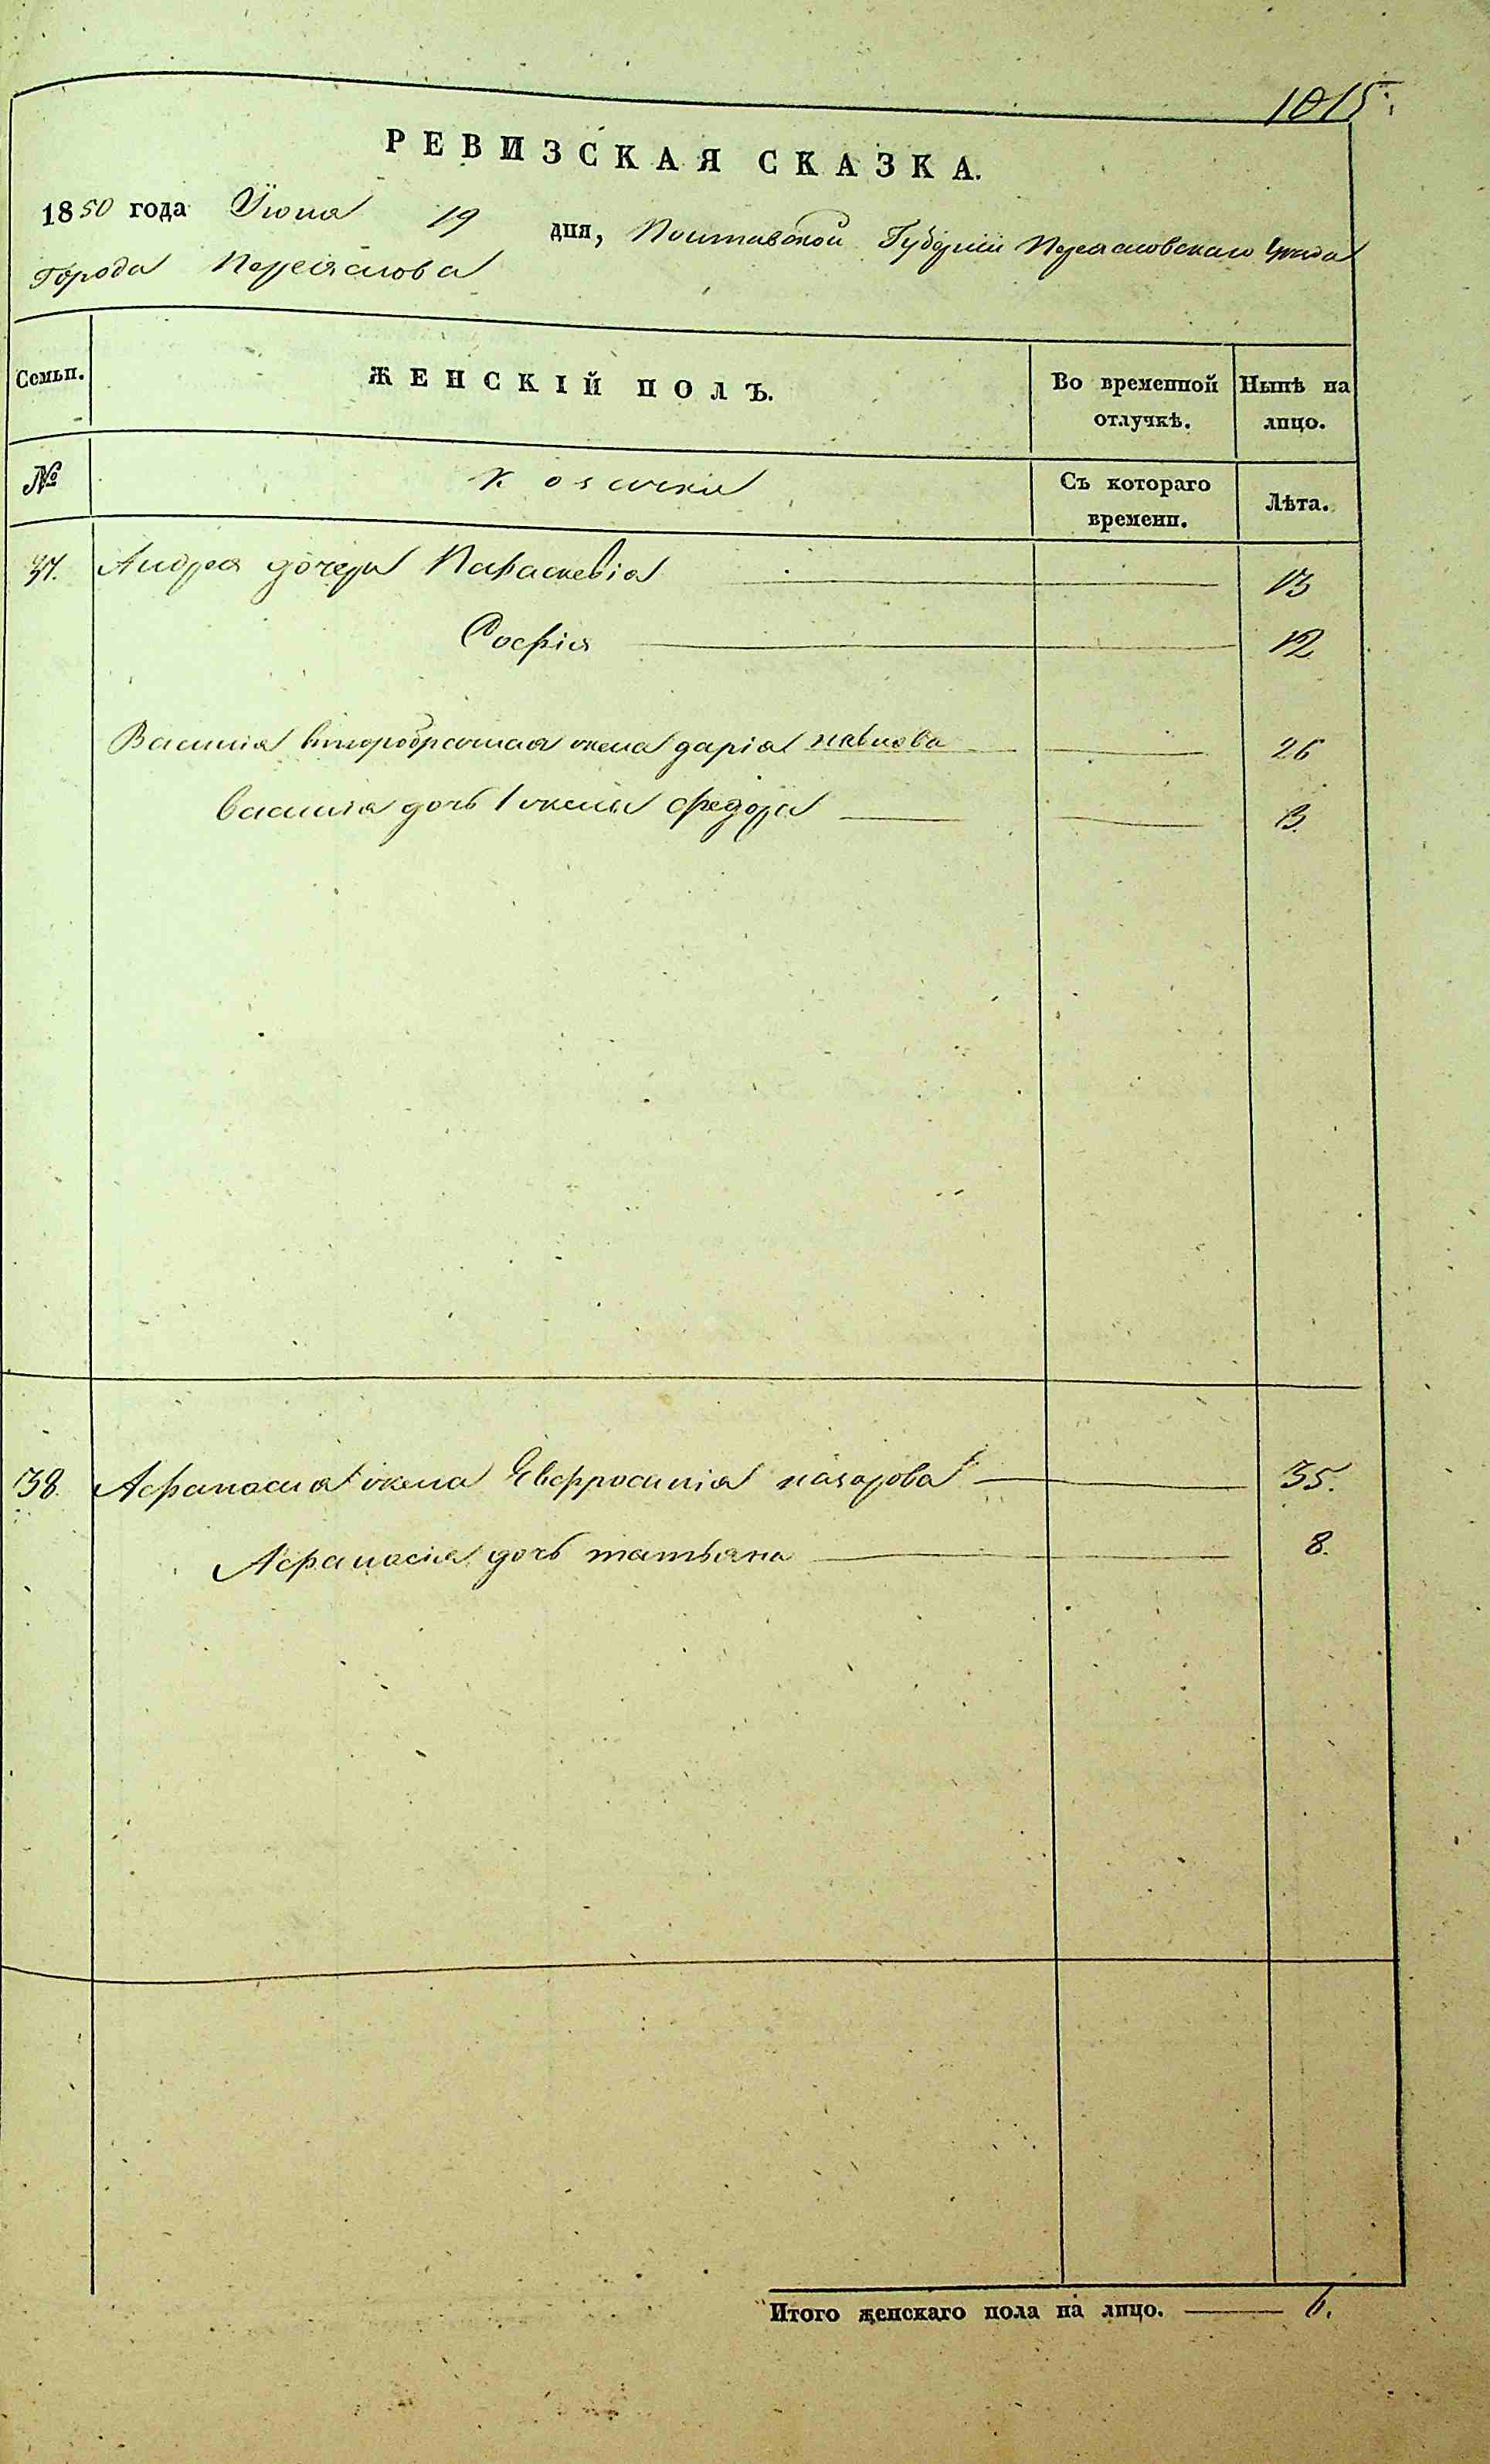 1015.
РЕВИЗСКАЯ СКАЗКА.
1850 года Іюня 19 дня, Полтавской Губерніи Переясловскаго Уезда
города Переяслова
Семьи. ЖЕНСКІЙ ПОЛЪ. Во временной отлучкѣ. Нынѣ на лицо.
№ Козачки Съ котораго времени. Лѣта.
37. Андрея дочери Параскевія 13
Софія 12
Василія второбрачная жена дарія павлова 26
василія дочь 1 жены федора 13.
38. Афанасия жена Евфросинія назарова 35.
Афанасія дочь татьяна 8.
Итого женскаго пола на лицо. 6.